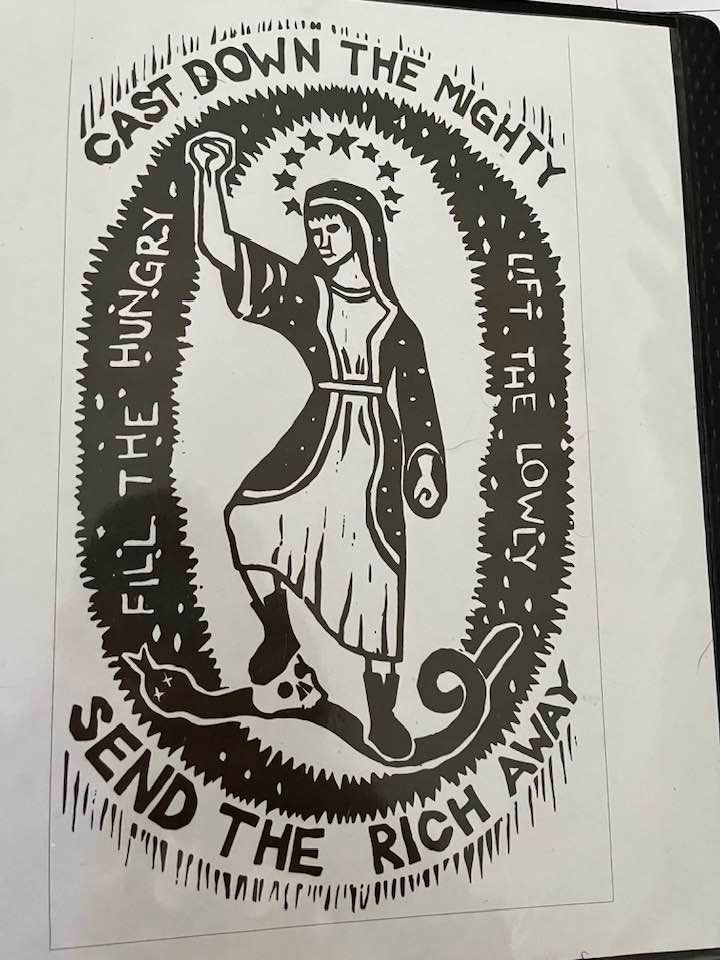 CAST DOWN THE MIGHTY
LIFT THE LOWLY
FILL THE HUNGRY
SEND THE RICH AWAY